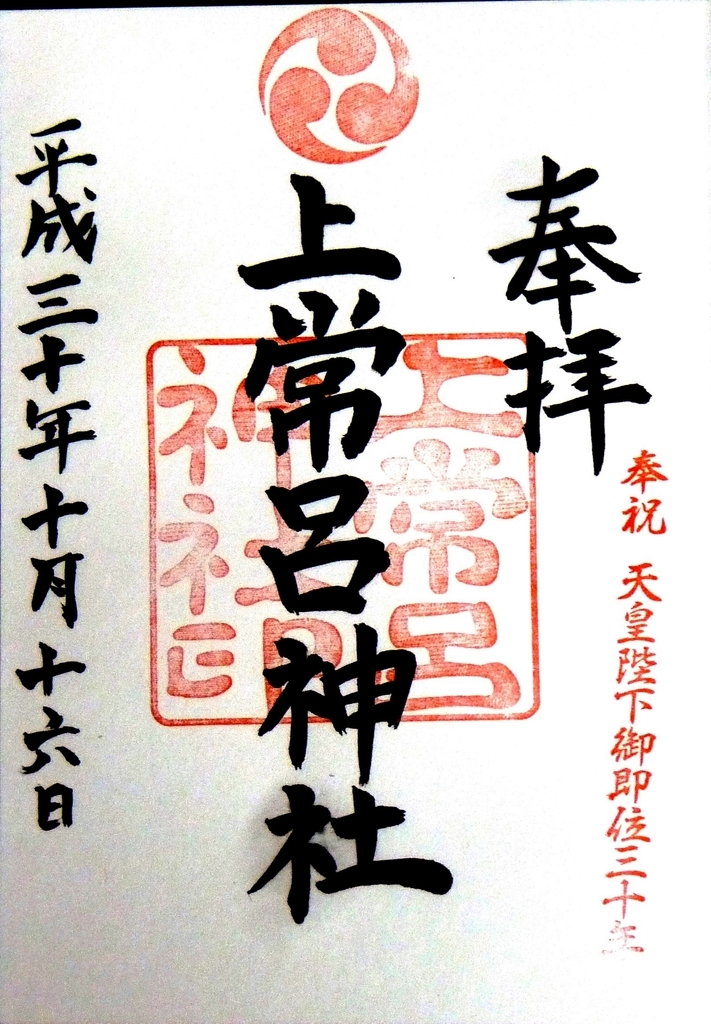 奉拝
奉祝 天皇陛下御即位三十年
上常呂神社
上常呂
神社印
平成三十年十月十六日